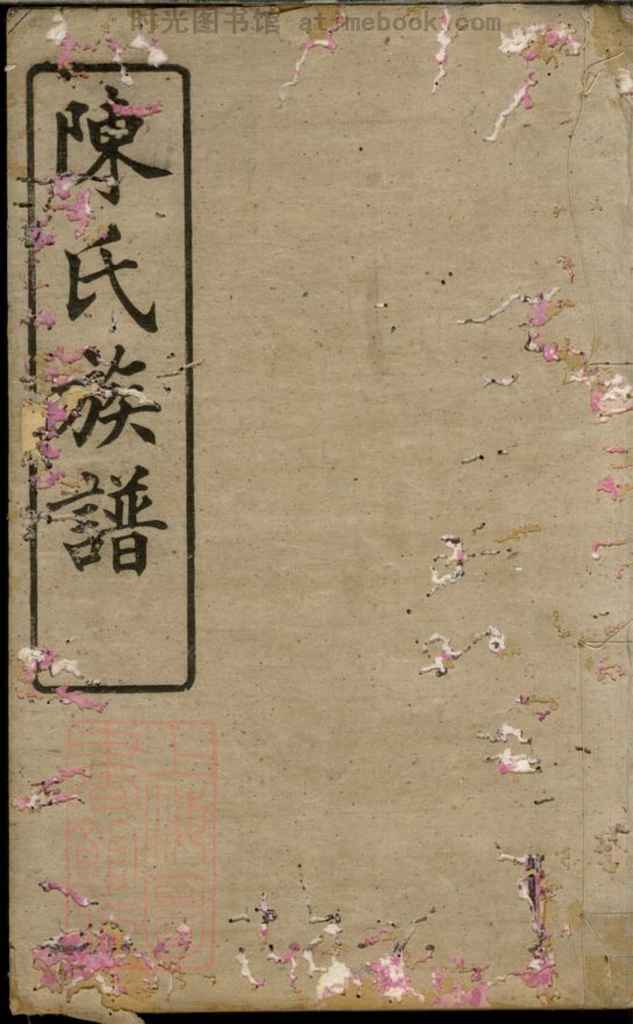 时光图书馆 atimebook.com
陳氏族譜